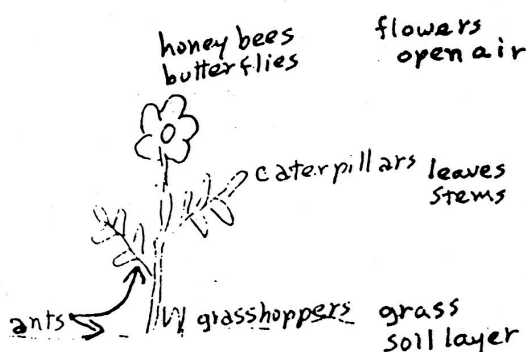 honey bees
butterflies
flowers
open air
caterpillars
leaves
stems
ants
grasshoppers
grass
soil layer